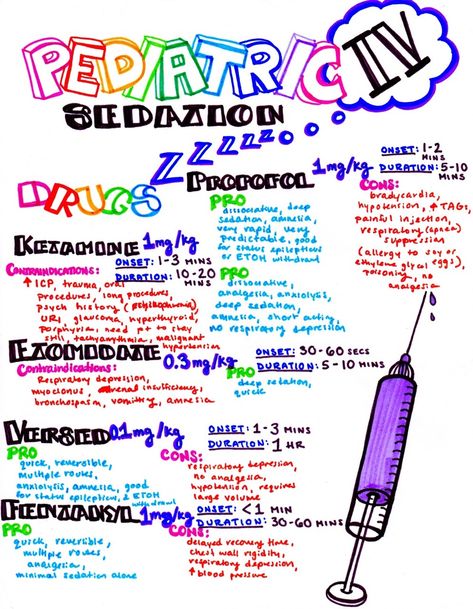 PEDIATRIC IV
SEDATION
ZZZZZZ...
DRUGS
PROPOFOL 1mg/kg
ONSET: 1-2 MINS
DURATION: 5-10 MINS
PRO
dissociative, deep
sedation, amnesia,
very rapid, very
predictable, good
for status epilepticus
or ETOH withdrawl
CONS:
bradycardia,
hypotension, ↑ TAGs,
painful injection,
respiratory (apnea)
suppression
(allergy to soy or
ethylene glycol eggs),
poisoning, no
analgesia
KETAMINE 1mg/kg
ONSET: 1-3 MINS
DURATION: 10-20 MINS
CONTRAINDICATIONS:
↑ ICP, trauma, oral
procedures, long procedures,
psych history (schizophrenia)
URI, glaucoma, hyperthyroid,
porphyria, need pt to stay
still, tachyarrythmia, malignant
hypertension
PRO
dissociative,
analgesia, anxiolysis,
deep sedation,
amnesia, short acting,
no respiratory depression
ETOMIDATE 0.3mg/kg
ONSET: 30-60 SECS
DURATION: 5-10 MINS
Contraindications:
Respiratory depression,
myoclonus, adrenal insufficiency,
bronchospasm, vomiting, amnesia
PRO
deep sedation,
quick
VERSED 0.1mg/kg
ONSET: 1-3 MINS
DURATION: 1 HR
PRO
quick, reversible,
multiple routes,
anxiolysis, amnesia, good
for status epilepticus, & ETOH
withdrawl
CONS:
respiratory depression,
no analgesia,
hypotension, requires
large volume
FENTANYL 1mg/kg
ONSET: <1 MIN
DURATION: 30-60 MINS
PRO
quick, reversible,
multiple routes,
analgesia,
minimal sedation alone
CONS:
delayed recovery time,
chest wall rigidity,
respiratory depression,
↑ blood pressure